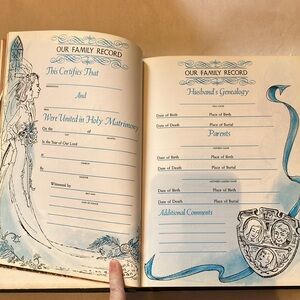 OUR FAMILY RECORD
This Certifies That
And
Were United in Holy Matrimony
On the of
In the Year of Our Lord
At
By
Witnessed by
OUR FAMILY RECORD
Husband's Genealogy
Date of Birth Place of Birth
Date of Death Place of Burial
Parents
Date of Birth Place of Birth
Date of Death Place of Burial
Date of Birth Place of Birth
Date of Death Place of Burial
Additional Comments